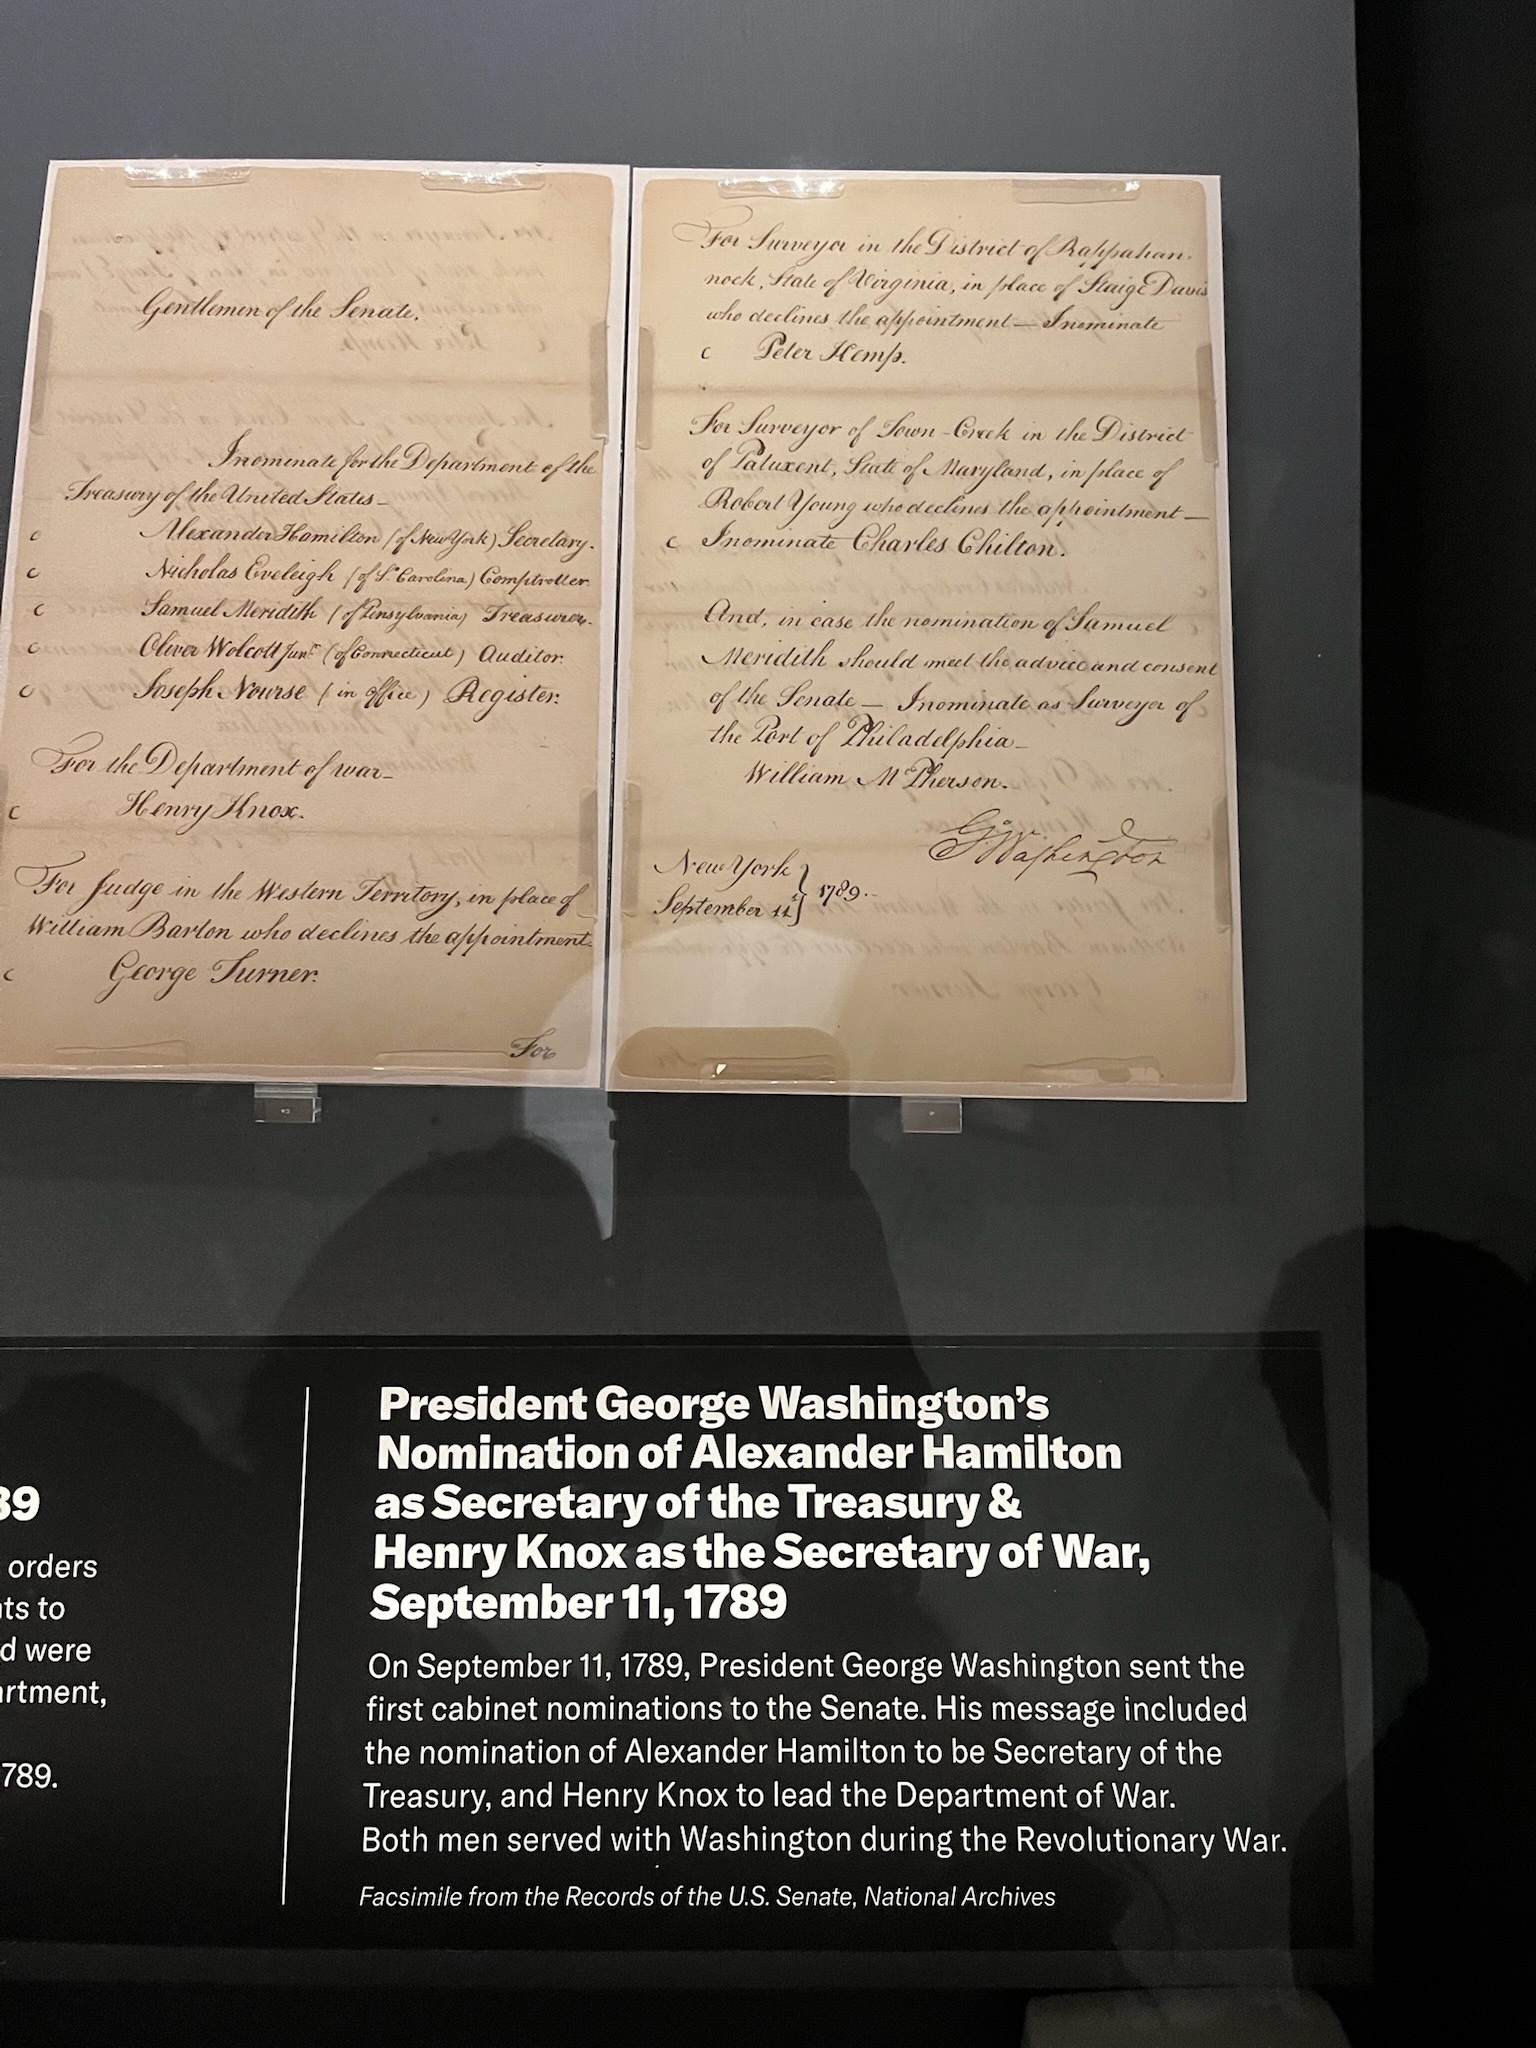 Gentlemen of the Senate.
I nominate for the Department of the
Treasury of the United States—
c Alexander Hamilton (of New York) Secretary.
c Nicholas Eveleigh (of So. Carolina) Comptroller.
c Samuel Meridith (of Pensylvania) Treasurer.
c Oliver Wolcott Junr. (of Connecticut) Auditor.
c Joseph Nourse (in office) Register.
For the Department of war—
c Henry Knox.
For Judge in the Western Territory, in place of
William Barton who declines the appointment.
c George Turner.
For
For Surveyor in the District of Rappahan-
nock, State of Virginia, in place of Staige Davis
who declines the appointment — I nominate
c Peter Kemp.
For Surveyor of Town-Creek in the District
of Patuxent, State of Maryland, in place of
Robert Young who declines the appointment—
c I nominate Charles Chilton.
And, in case the nomination of Samuel
Meridith should meet the advice and consent
of the Senate — I nominate as Surveyor of
the Port of Philadelphia—
William McPherson.
Go. Washington
New York
September 11 } 1789.
President George Washington's
Nomination of Alexander Hamilton
as Secretary of the Treasury &
Henry Knox as the Secretary of War,
September 11, 1789
On September 11, 1789, President George Washington sent the
first cabinet nominations to the Senate. His message included
the nomination of Alexander Hamilton to be Secretary of the
Treasury, and Henry Knox to lead the Department of War.
Both men served with Washington during the Revolutionary War.
Facsimile from the Records of the U.S. Senate, National Archives
89
orders
ts to
d were
artment,
789.